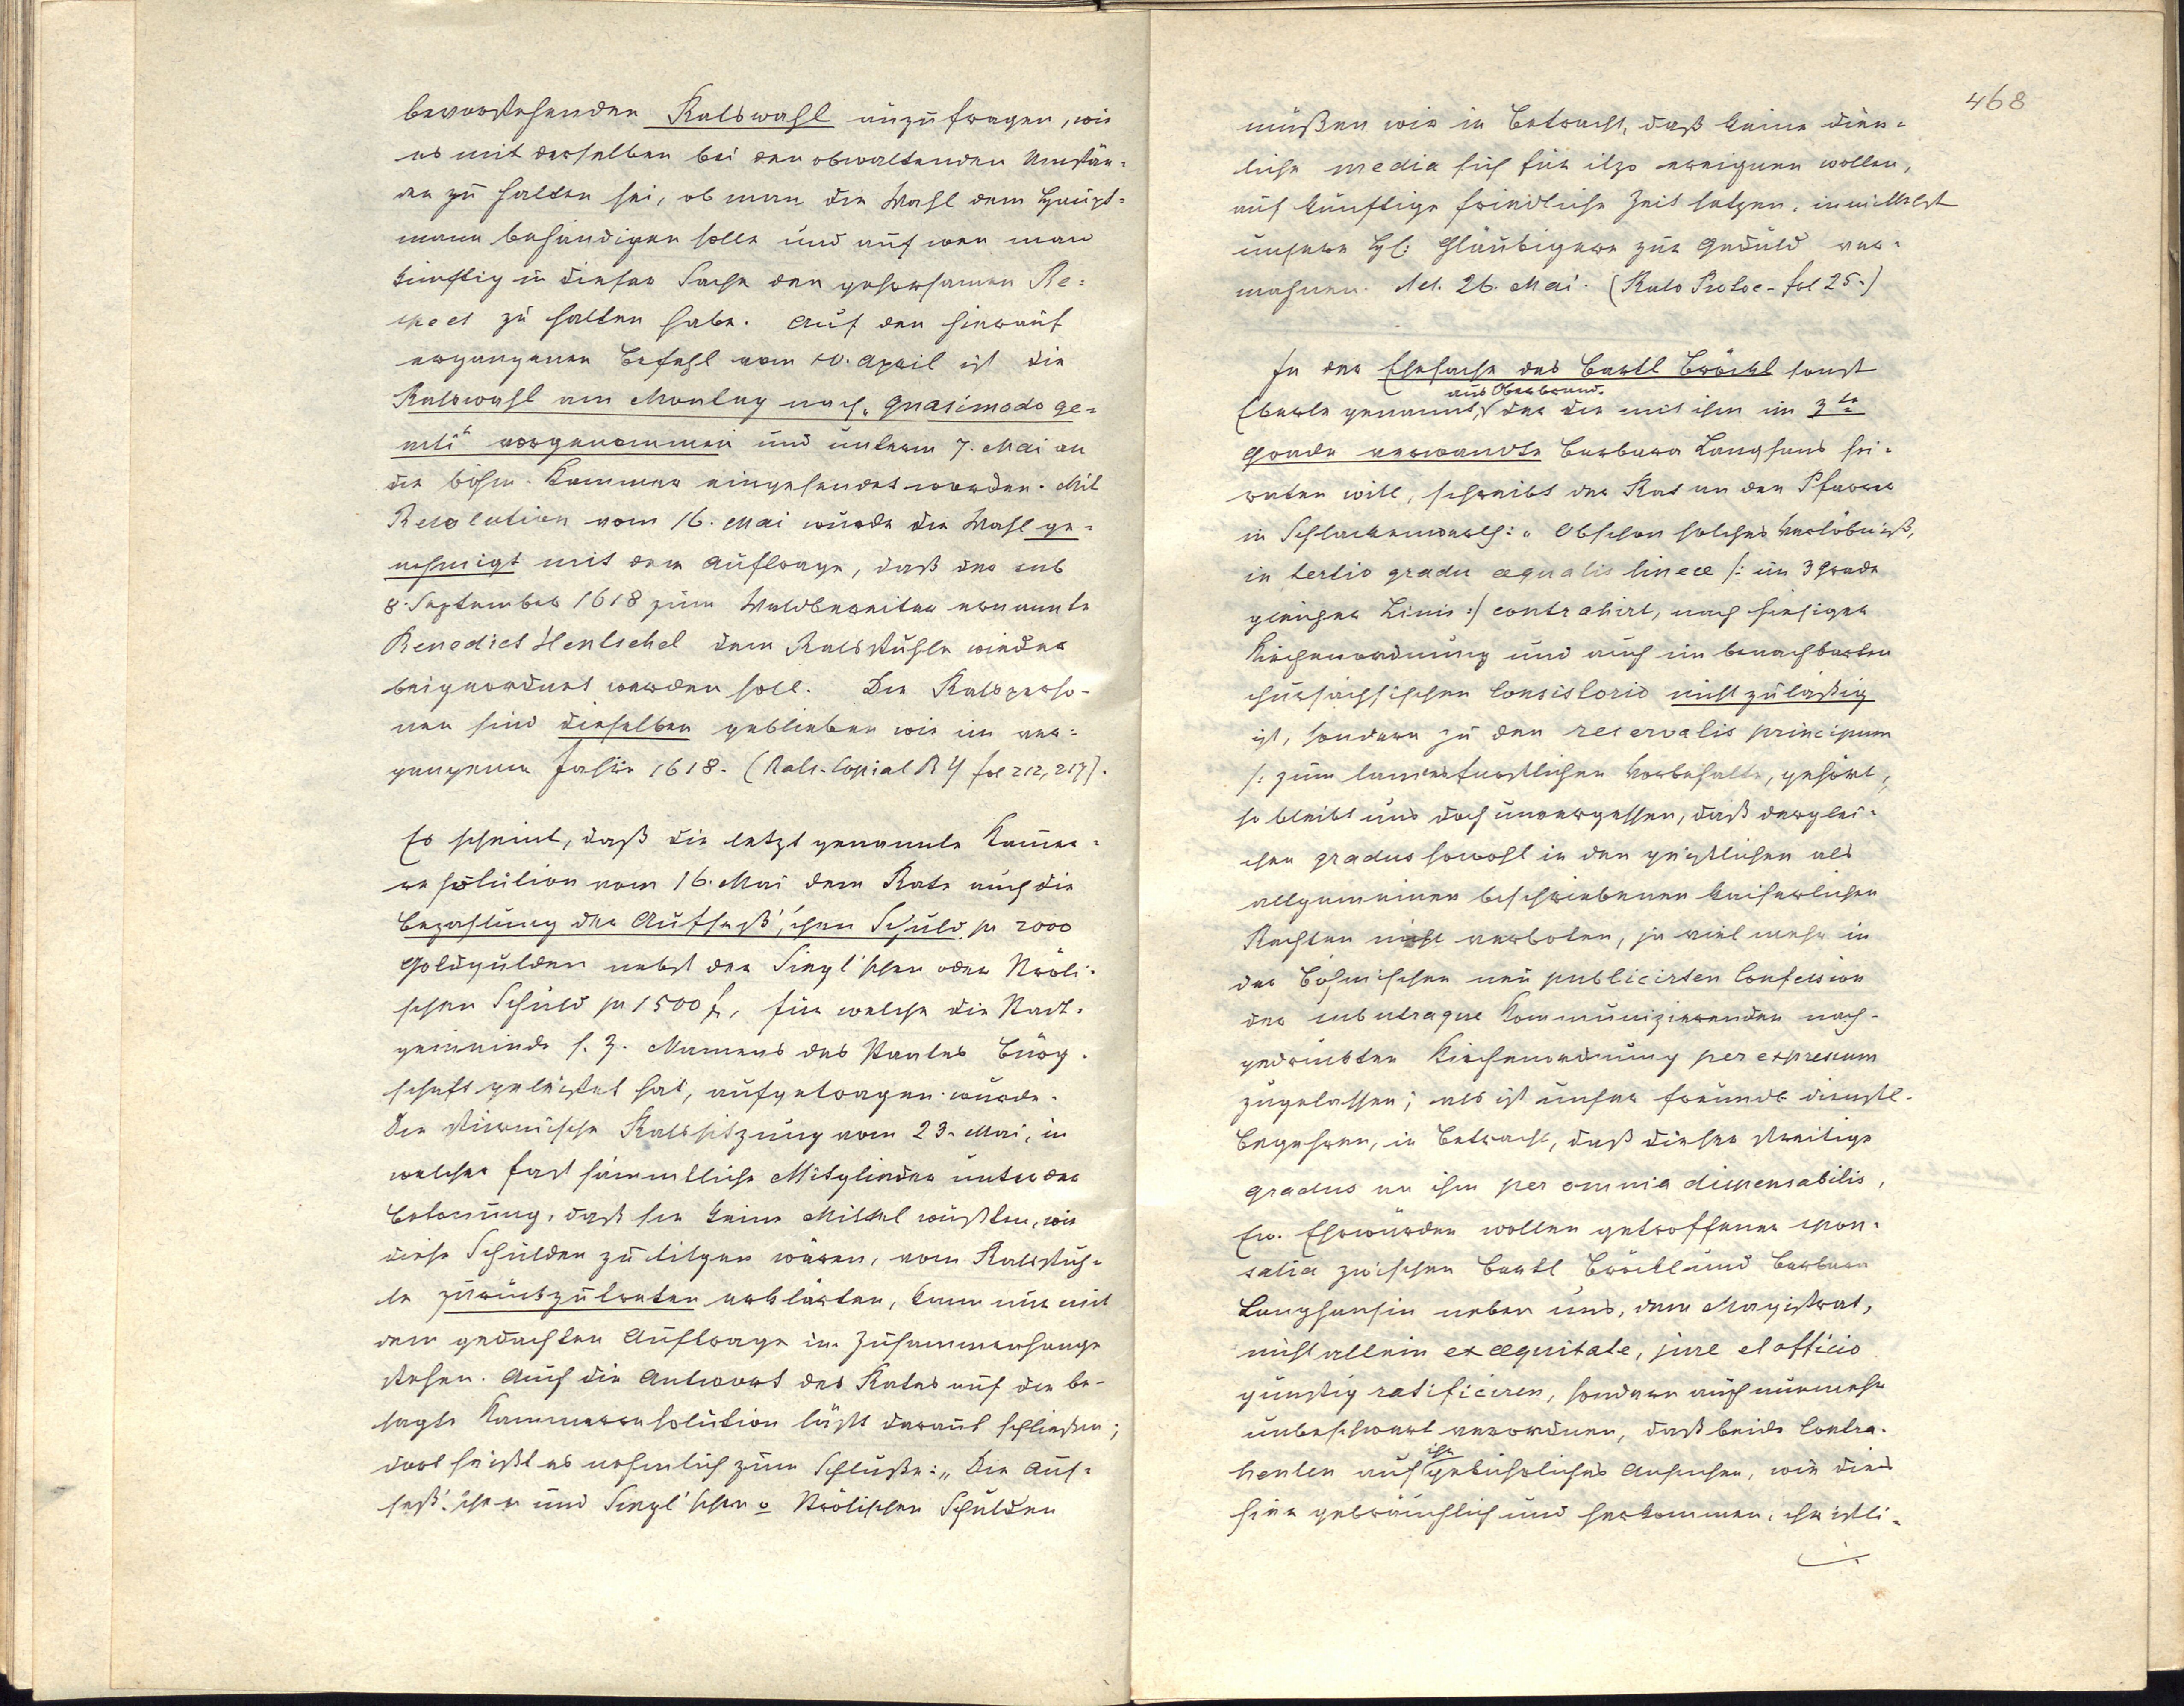 bevorstehenden Ratswahl anzufragen, wie
es mit derselben bei den obwaltenden Umstän-
den zu halten sei, ob man die Wahl dem Haupt-
mann behändigen solle und auf wen man
künftig in dieser Sache den gehorsamen Re-
spect zu halten habe. Auf den hierauf
ergangenen Befehl vom 10. April ist die
Ratswahl am Montag nach „Quasimodo ge-
niti“ vorgenommen und unterm 7. Mai an
die böhm. Kammer eingesendet worden. Mit
Resolution vom 16. Mai wurde die Wahl ge-
nehmigt mit dem Auftrage, daß der sub
8. September 1618 zum Waldbereiter ernannte
Benedict Hentschel dem Ratsstuhle wieder
beigeordnet werden soll. Die Ratsperso-
nen sind dieselben geblieben wie im ver-
gangenen Jahre 1618. (Rats-Copial B 4 fol 212, 217).
Es scheint, daß die letzt genannte Kammer-
resolution vom 16. Mai dem Rate auch die
Bezahlung der Aufseß'schen Schuld pr 2000
Goldgulden nebst der Singl'schen oder Nröli-
schen Schuld pr 1500 f, für welche die Stadt-
gemeinde s. Z. Namens des Staates Bürg-
schaft geleistet hat, aufgetragen wurde.
Die stürmische Ratssitzung vom 23. Mai, in
welcher fast sämmtliche Mitglieder unter der
Betonung, daß sie keine Mittel wüßten, wie
diese Schulden zu tilgen wären, vom Ratsstuh-
le zurückzutreten erklärten, kann nur mit
dem gedachten Auftrage im Zusammenhange
stehen. Auch die Antwort des Rates auf die be-
sagte Kammerresolution läßt darauf schließen;
dort heißt es nehmlich zum Schluße: „Die Auf-
seß'schen und Singl'schen o Nrölischen Schulden
468
müßen wir in Betracht, daß keine dien-
liche media sich für itzo ereignen wollen,
auf künftige friedliche Zeit setzen, inmittelst
unsere Hl: Gläubigere zur Geduld ver-
mahnen. Act. 26. Mai. (Rats Protoc. fol 25.)
In der Ehesache des Bartl Bröckl sonst
aus Oberbrand.
Eberle genannt, der die mit ihm im 3te
Grade verwandte Barbara Langhans hei-
raten will, schreibt der Rat an den Pfarrer
in Schlackenwerth: „Obschon solches Verlöbniß,
in tertio gradu æqualis lineæ /: im 3 Grade
gleicher Linie :/ contrahirt, nach hiesiger
Kirchenordnung und auch im benachbarten
chursächsischen Consistorio nicht zuläßig
ist, sondern zu den reservatis principum
/: zum landesfürstlichen Vorbehalte, gehört,
so bleibt uns doch unvergessen, daß derglei-
chen gradus sowohl in den geistlichen als
allgemeinen beschriebenen kaiserlichen
Rechten nicht verboten, ja viel mehr in
der Böhmischen neu publicirten Confession
der sub utraque Kommunizierenden nach-
gedruckten Kirchenordnung per expressum
zugelassen; als ist unser freundt dienstl.
Begehren, in Betracht, daß dieser streitige
gradus an ihm per omnia dispensabilis,
Ew. Ehrwürden wollen getroffener spon-
salia zwischen Bartl Bröckl und Barbara
Langhansin neben uns, dem Magistrat,
nicht allein ex æquitate, jure et officio
günstig ratificiren, sondern auch nunmehr
unbeschwert verordnen, daß beide Contra-
ihr
henten auf gebührliches Ansuchen, wie dies
hier gebräuchlich und herkommen, christli-